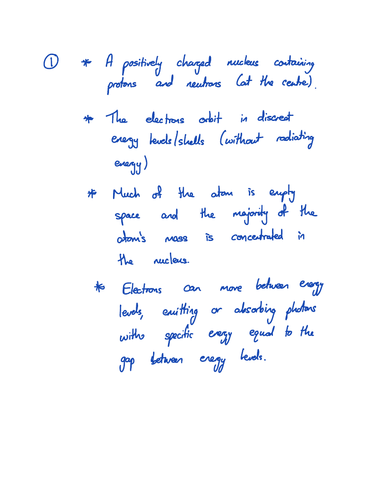 ① * A positively charged nucleus containing
protons and neutrons (at the centre).
* The electrons orbit in discreet
energy levels/shells (without radiating
energy)
* Much of the atom is empty
space and the majority of the
atom's mass is concentrated in
the nucleus.
* Electrons can move between energy
levels, emitting or absorbing photons
with specific energy equal to the
gap between energy levels.